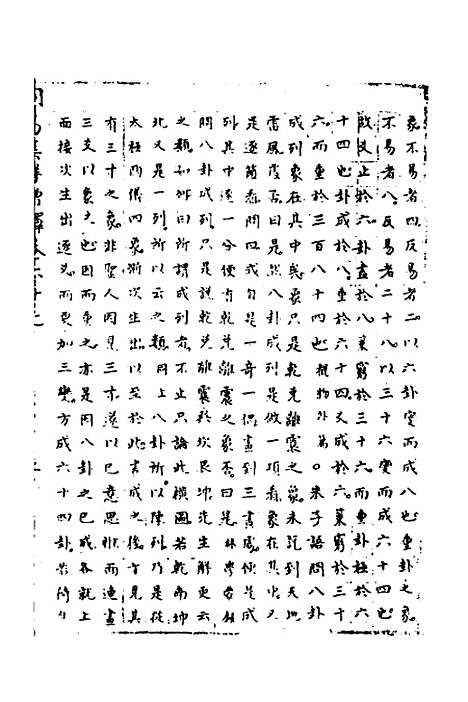 象不易者四反易者二以六卦變而成八也重卦之象
不易者八反易者二十八以三十六變而成六十四也
故爻止於六卦盡於八策窮於三十六而重卦極於六
十四也卦成於八重於六十四爻成於六策窮於三十
六而重於三百八十四也觀物外篇○朱子語問八卦
成列象在其中與象只是乾兌離震之象未說到天地
雷風處否曰是然八卦成列是做一項看象在其中又
是逐箇看問四成自一奇一偶畫到三畫處便是成
列其中逐一分便有乾兌離震之象否曰是林學蒙
問八卦成列只是說乾兌離震巽坎艮坤先生解更云
之類如何曰所謂成列者不止只論此橫圖若乾南坤
北又是一列所以云之類同上八卦所以陳列乃是從
太極兩儀四象漸次生出以至於此畫成之後方見其
有三才之象非聖人因見三才遂以己意思惟而連畫
三爻以象之也因而重之亦是因八卦之已成各就上
面接次生出逐爻而更加三變方成六十四卦若待